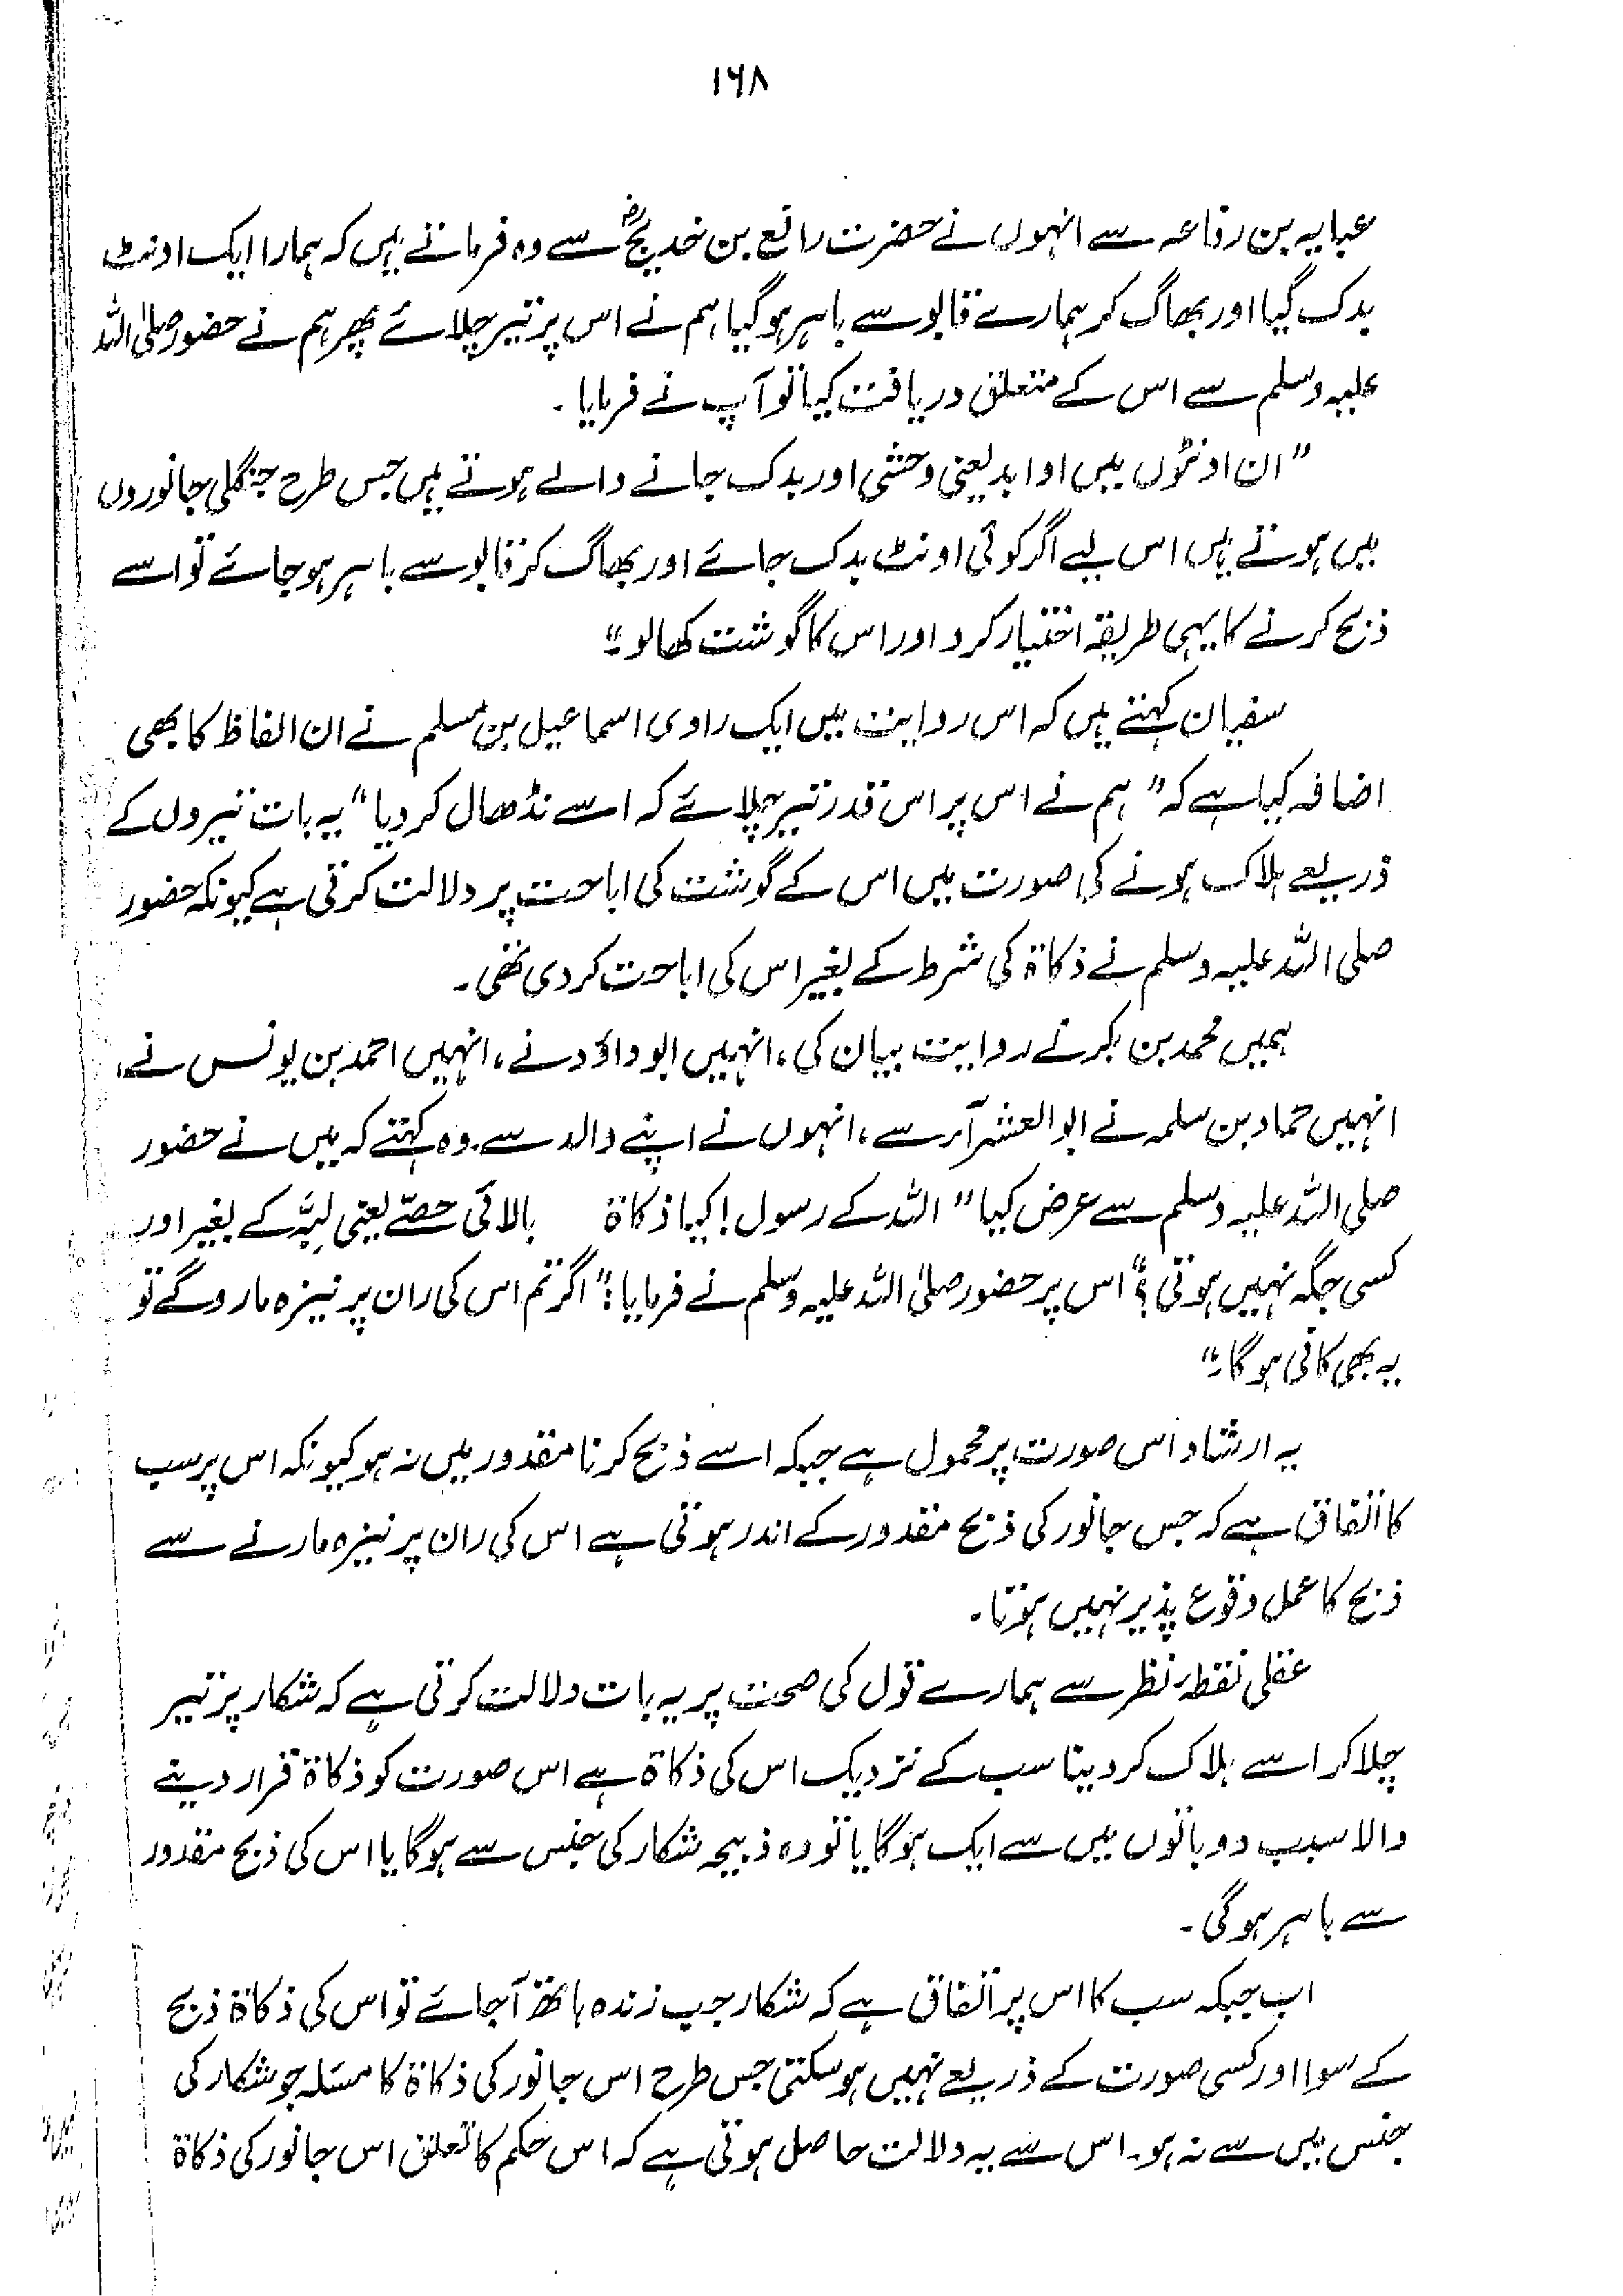 ۱۶۸
عبایہ بن رفاعہ سے انہوں نے حضرت رافع بن خدیجؓ سے وہ فرماتے ہیں کہ ہمارا ایک اونٹ
بدک گیا اور بھاگ کر ہمارے قابو سے باہر ہو گیا ہم نے اس پر تیر چلائے پھر ہم نے حضور صلی اللہ
علیہ وسلم سے اس کے متعلق دریافت کیا تو آپ نے فرمایا۔
"ان اونٹوں میں اوابد یعنی وحشی اور بدک جانے والے ہوتے ہیں جس طرح جنگلی جانوروں
میں ہوتے ہیں اس لیے اگر کوئی اونٹ بدک جائے اور بھاگ کر قابو سے باہر ہو جائے تو اسے
ذبح کرنے کا یہی طریقہ اختیار کرو اور اس کا گوشت کھا لو۔"
سفیان کہتے ہیں کہ اس روایت میں ایک راوی اسماعیل بن مسلم نے ان الفاظ کا بھی
اضافہ کیا ہے کہ "ہم نے اس پر اس قدر تیر چلائے کہ اسے نڈھال کر دیا" یہ بات تیروں کے
ذریعے ہلاک ہونے کی صورت میں اس کے گوشت کی اباحت پر دلالت کرتی ہے کیونکہ حضور
صلی اللہ علیہ وسلم نے ذکاۃ کی شرط کے بغیر اس کی اباحت کر دی تھی۔
ہمیں محمد بن بکر نے روایت بیان کی، انہیں ابو داؤد نے، انہیں احمد بن یونس نے،
انہیں حماد بن سلمہ نے ابو العشرآر سے، انہوں نے اپنے والد سے۔ وہ کہتے کہ میں نے حضور
صلی اللہ علیہ وسلم سے عرض کیا "اللہ کے رسول! کیا ذکاۃ بالائی حصّے یعنی لبّہ کے بغیر اور
کسی جگہ نہیں ہوتی؟" اس پر حضور صلی اللہ علیہ وسلم نے فرمایا: "اگر تم اس کی ران پر نیزہ مارو گے تو
یہ بھی کافی ہو گا۔"
یہ ارشاد اس صورت پر محمول ہے جبکہ اسے ذبح کرنا مقدور میں نہ ہو کیونکہ اس پر سب
کا اتفاق ہے کہ جس جانور کی ذبح مقدور کے اندر ہوتی ہے اس کی ران پر نیزہ مارنے سے
ذبح کا عمل وقوع پذیر نہیں ہوتا۔
عقلی نقطہ نظر سے ہمارے قول کی صحت پر یہ بات دلالت کرتی ہے کہ شکار پر تیر
چلا کر اسے ہلاک کر دینا سب کے نزدیک اس کی ذکاۃ ہے اس صورت کو ذکاۃ قرار دینے
والا سبب دو باتوں میں سے ایک ہو گا یا تو وہ ذبیحہ شکار کی جنس سے ہو گا یا اس کی ذبح مقدور
سے باہر ہو گی۔
اب جبکہ سب کا اس پر اتفاق ہے کہ شکار جب زندہ ہاتھ آ جائے تو اس کی ذکاۃ ذبح
کے سوا اور کسی صورت کے ذریعے نہیں ہو سکتی جس طرح اس جانور کی ذکاۃ کا مسئلہ جو شکار کی
جنس میں سے نہ ہو۔ اس سے یہ دلالت حاصل ہوتی ہے کہ اس حکم کا تعلق اس جانور کی ذکاۃ